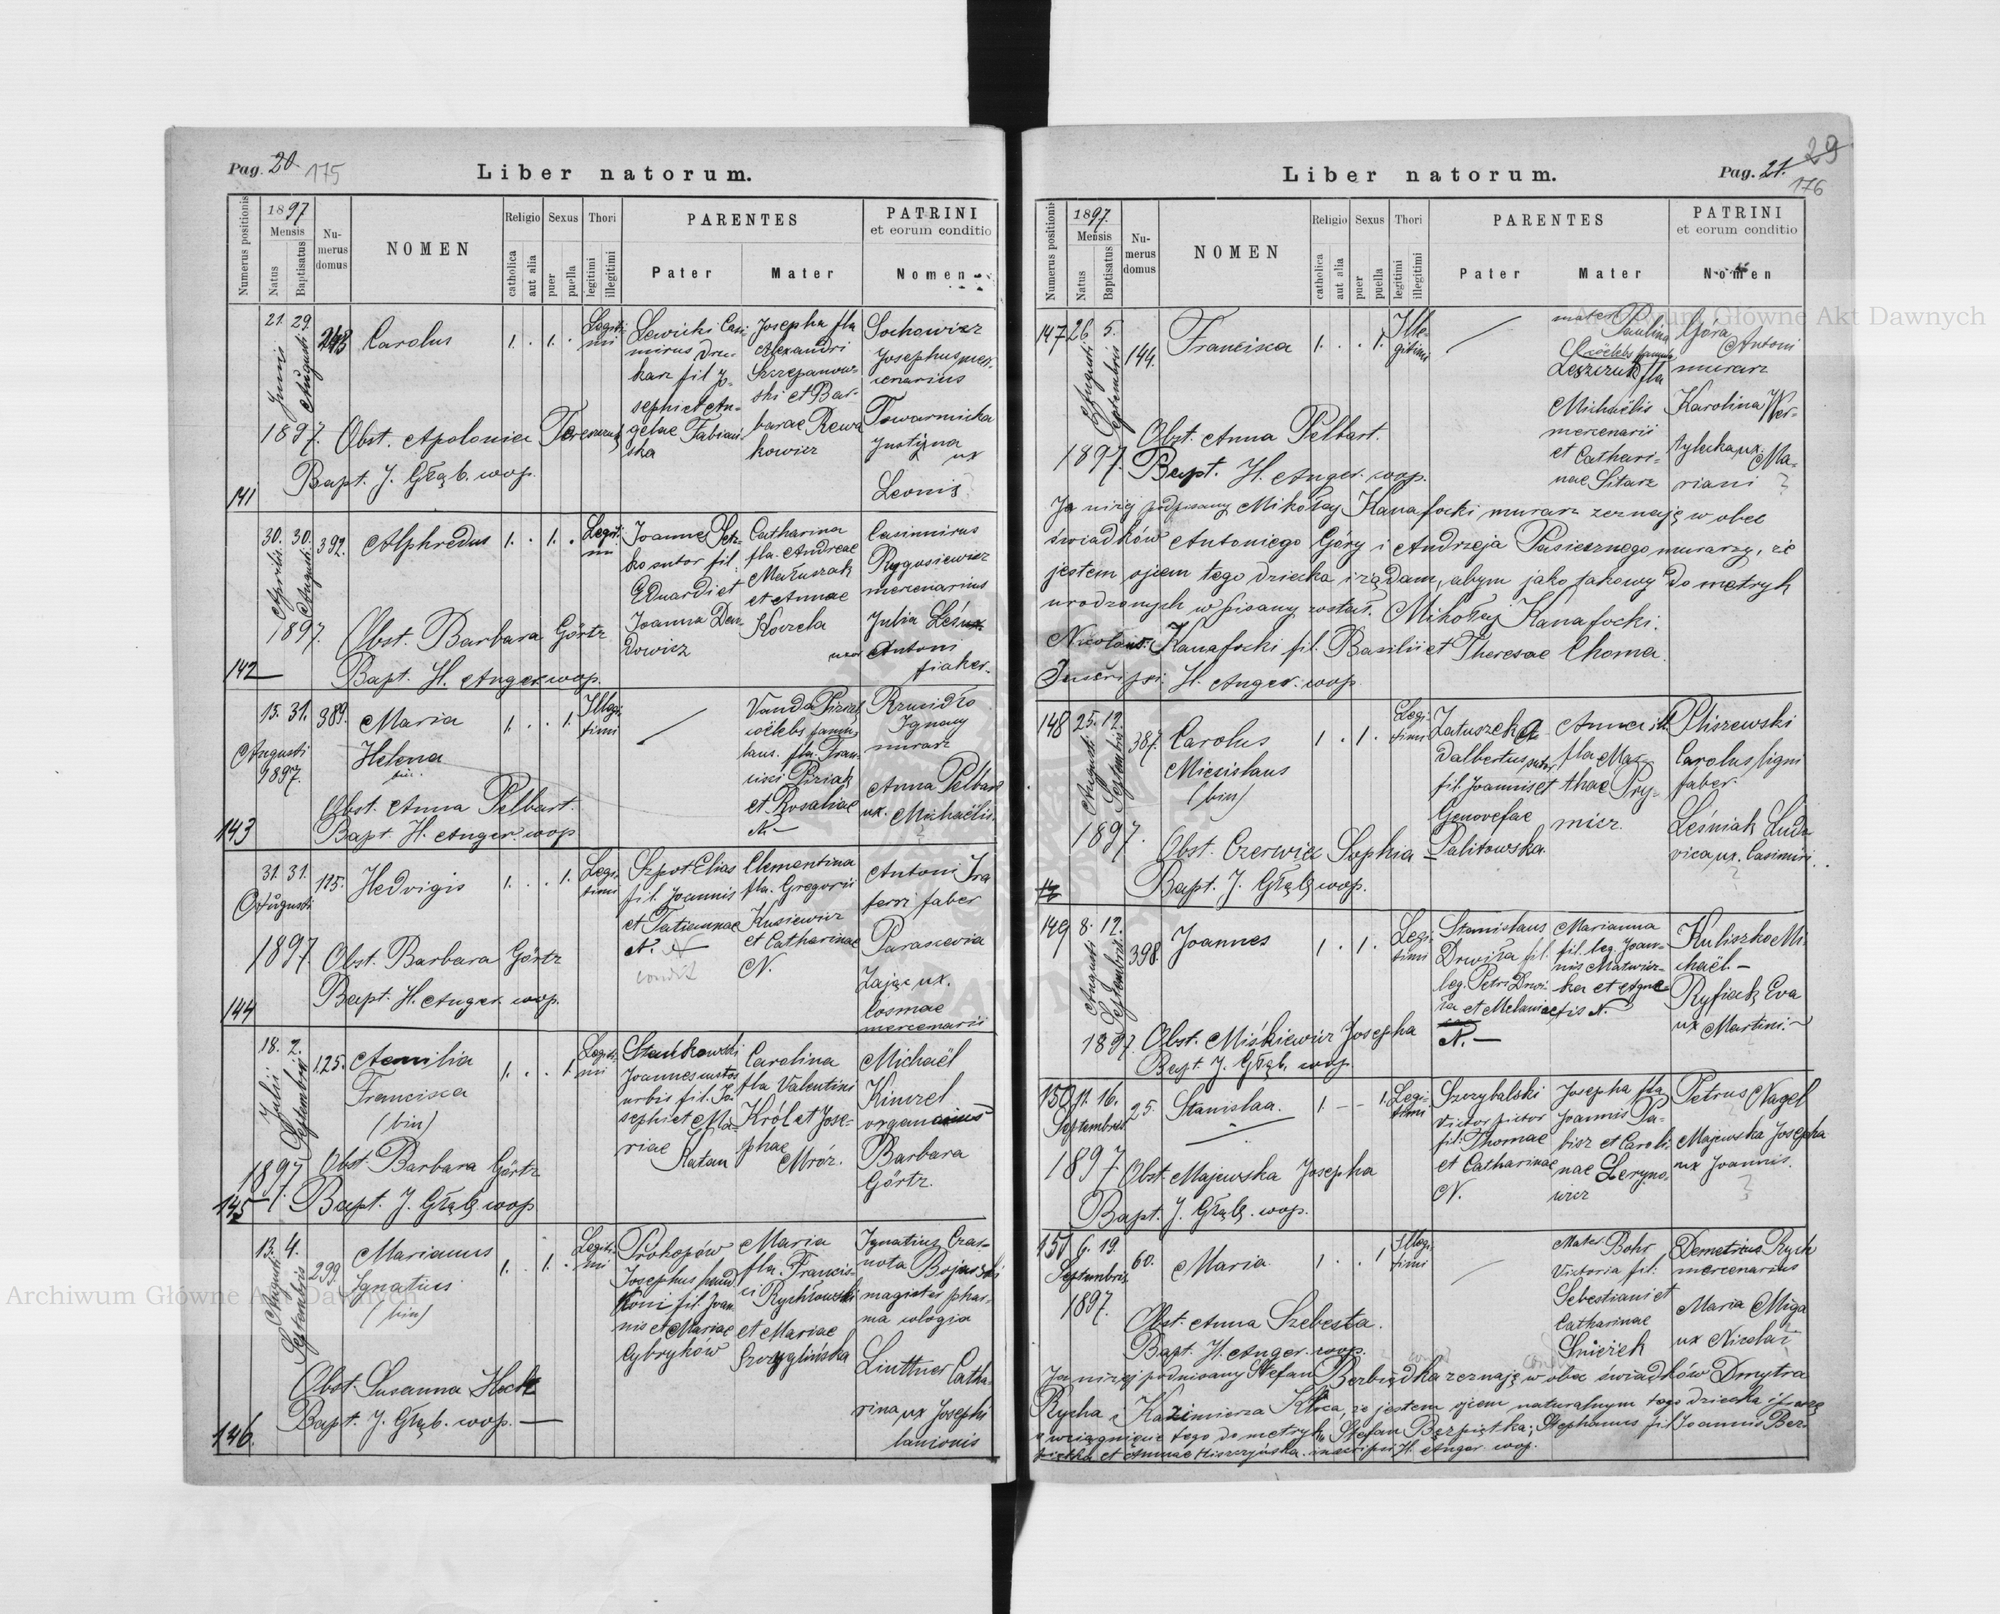 Pag. 20. 175
Liber natorum.
Numerus positionis
1897
Mensis
Natus
Baptisatus
Nu-
merus
domus
NOMEN
Religio
catholica
aut alia
Sexus
puer
puella
Thori
legitimi
illegitimi
PARENTES
Pater
Mater
PATRINI
et eorum conditio
Nomen
141
21. Junii
29. Augusti
1897.
Carolus
1. . 1. .
Legiti-
mi
Lewicki Casi-
mirus dru-
karz fil Jo-
sephi et An-
gelae Fabiań-
ska
Josepha fla
Alexandri
Szczepanow-
ski et Bar-
barae Rewa-
kowicz
Sochowicz
Josephus mer-
cenarius
Towarnicka
Justyna
ux
Leonis
Obst. Apolonia
Bapt. J. Głąb. wop.
142
30. Aprilis
30. Augusti
1897.
392.
Alphredus
1. . 1. .
Legiti-
mi
Joannes
ko sutor fil.
Eduardi et
Joanna Dem-
kowicz
Catharina
fla. Andreae
Matuszak
et Annae
Koczela
Casimirus
Rygasiewicz
mercenarius
Julia
uxor Antoni
fiaker.
Obst. Barbara Görtz
Bapt. H. Anger wop.
143
15. 31.
Augusti
1897.
389.
Maria
Helena
bin.
1. . . 1.
Illegi-
timi
Vanda
coelebs famu-
lans. fla. Fran-
cisci
et Rosaliae
N.
Rzucidło
Ignacy
murarz
Anna Pelbart
ux. Michaëlis.
Obst. Anna Pelbart.
Bapt. H. Anger. wop
144
31. 31.
Augusti
1897.
115.
Hedvigis
1. . . 1.
Legi-
timi
Szpot Elias
fil. Joannis
et Tatiannae
N.
Clementina
fla. Gregorii
Kusiewicz
et Catharinae
N.
Antoni
faber
Parascevia
Zając ux.
Cosmae
mercenarii
Obst. Barbara Görtz
Bapt. H. Anger. wop.
145
18. Julii
2. Septembris
1897.
125.
Aemilia
Francisca
(bin)
1. . . 1.
Legiti-
mi
Stańkowski
Joannes custos
urbis fil. Jo-
sephi et Ma-
riae
Katan
Carolina
fla Valentini
Król et Jose-
phae
Mróz.
Michaël
Kinzel
organarius
Barbara
Görtz.
Obst. Barbara Görtz
Bapt. J. Głąb wop
146.
13. Augusti
4. Septembris
299.
Marianus
Ignatius
(bin)
1. . 1. .
Legiti-
mi
Prokopów
Josephus
fil. Joan-
nis et Mariae
Cybryków
Maria
fla. Francis-
ci Rychłowski
et Mariae
Szczyglińska
Ignatius Czas-
nota Bojarski
magister phar-
macologia
Linttner Catha-
rina ux Josephi
lanionis
Obst. Susanna Heck
Bapt. J. Głąb. wop.
Pag. 21. 29
176
Liber natorum.
Numerus positionis
1897.
Mensis
Natus
Baptisatus
Nu-
merus
domus
NOMEN
Religio
catholica
aut alia
Sexus
puer
puella
Thori
legitimi
illegitimi
PARENTES
Pater
Mater
PATRINI
et eorum conditio
Nomen
147
26 Augusti
5. Septembris
1897.
144.
Francisca
1. . . 1.
Ille-
gitimi
mater
Paulina
coelebs famula
Leszczuk fla
Michaëlis
mercenarii
et Cathari-
nae Sitarz
Góra
Antoni
murarz
Karolina Wer-
tylecka ux.
Ma-
riani
Obst. Anna Pelbart.
Bapt. H. Anger. wop.
Ja niżej podpisany Mikołaj Kanafocki murarz zeznaję w obec
świadków Antoniego Góry i Andrzeja Pasiecznego murarzy, że
jestem ojcem tego dziecka i żądam, abym jako takowy do metryk
urodzonych wpisany został. Mikołaj Kanafocki.
Nicolaus Kanafocki fil. Basilii et Theresae Choma.
Inscripsi. H. Anger. wop.
148
25. Augusti
12. Septembris
1897.
387.
Carolus
Miecislaus
(bin)
1 . 1 .
Legi-
timi
Zatuszek A-
dalbertus sutor
fil. Joannis et
Genovefae
Palitowska.
Anna
fla Mat-
thae Pry-
micz.
Pliszewski
Carolus ligni
faber.
Leśniak Ludo-
vica, ux. Casimiri.
Obst. Czerwicz Sophia
Bapt. J. Głąb wop.
149
8. Augusti
12. Septembris
1897.
398.
Joannes
1 . 1 .
Legi-
timi
Stanislaus
Drwiła fil.
leg. Petri Drwi-
ła et Melaniae
N.
Marianna
fil. leg. Joan-
nis
ka et Agne-
tis N.
Kuliszko Mi-
chaël.
Ryfiak Eva
ux Martini.
Obst. Miśkiewicz Josepha
Bapt J. Głąb. wop
150
11. 16.
Septembris
1897
25.
Stanislaa.
1. — — 1.
Legi-
timi
Szczybalski
Victor pictor
fil. Thomae
et Catharinae
N.
Josepha fla
Joannis Pa-
bisz et Caroli-
nae Leryno-
wicz
Petrus Nagel
Majewska Josepha
ux Joannis.
Obst. Majewska Josepha
Bapt. J. Głąb. wop.
151
6. 19.
Septembris
1897.
60.
Maria
1 . . 1
Illegi-
timi
Mater Bohr
Victoria fil.
Sebestiani et
Catharinae
Śnieżek
Demetrius Rych
mercenarius
Maria Miga
ux Nicolai
Obst. Anna Szebesta.
Bapt. H. Anger. wop.
Ja niżej podpisany Stefan Berbiędka zeznaję w obec świadków Dmytra
Rycha i Kazimierza Kłoca, że jestem ojcem naturalnym tego dziecka i
o wciągnięcie tego do metryk Stefan Bezpiętka; Stephanus fil Joannis Bez-
piętka et Annae Hiszczyńska. inscripsi H. Anger. wop.
Archiwum Główne Akt Dawnych
Archiwum Główne Akt Dawnych